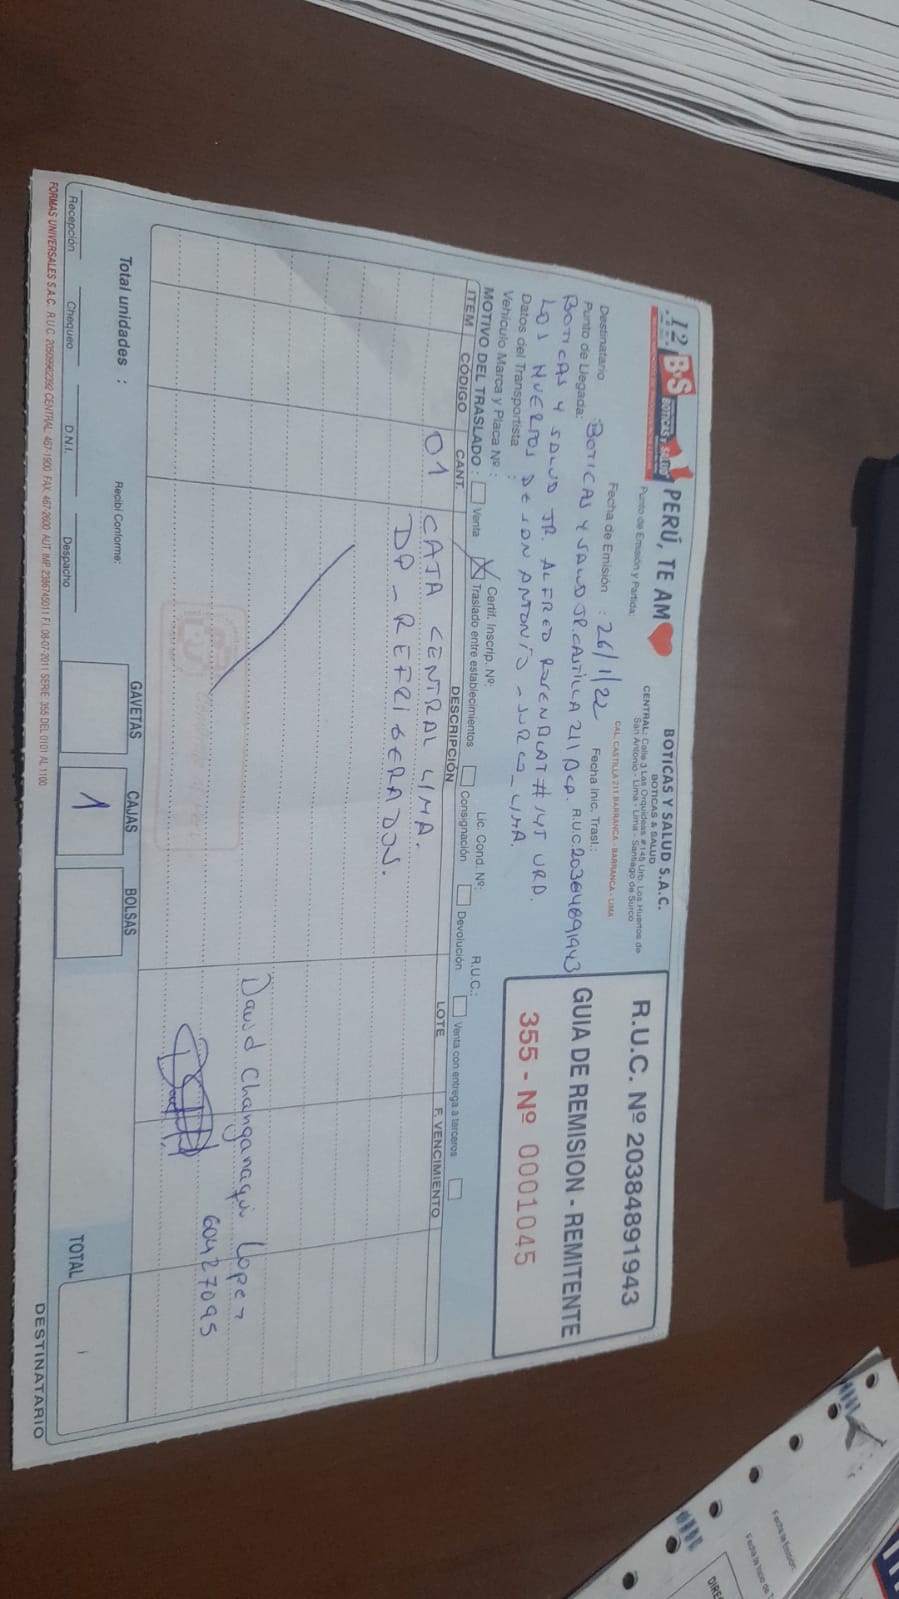 B&S BOTICAS Y SALUD PERÚ, TE AM
BOTICAS Y SALUD S.A.C.
BOTICAS & SALUD
CENTRAL: Calle 3 Las Orquídeas #145 Urb. Los Huertos de
San Antonio - Lima - Lima - Santiago de Surco
Punto de Emisión y Partida:
CAL. CASTILLA 211 BARRANCA - BARRANCA - LIMA
R.U.C. Nº 20384891943
GUIA DE REMISION - REMITENTE
355 - Nº 0001045
Fecha de Emisión : 26/1/22 Fecha Inic. Trasl.:
Destinatario : BOTICAS Y SALUD JR. CASTILLA 211 BCA. R.UC.20384891943
Punto de Llegada:
BOTICAS Y SALUD JR. ALFREDO # 145 URB.
LOS HUERTOS DE SAN ANTONIO - SURCO - LIMA.
Datos del Transportista :
Vehículo Marca y Placa Nº : Certif. Inscrip. Nº: Lic. Cond. Nº: R.U.C.:
MOTIVO DEL TRASLADO : Venta X Traslado entre establecimientos Consignación Devolución Venta con entrega a terceros
ITEM CÓDIGO CANT. DESCRIPCIÓN LOTE F. VENCIMIENTO
01 CAJA CENTRAL LIMA.
DP - REFRIGERADOS.
David Changanaqui Lopez
60427095
GAVETAS CAJAS BOLSAS TOTAL
Total unidades : 1
Recibí Conforme:
Recepción Chequeo D.N.I. Despacho
FORMAS UNIVERSALES S.A.C. R.U.C. 20509962292 CENTRAL 467-1900 FAX 467-2600 AUT. IMP. 2386745011 F.I. 08-07-2011 SERIE 355 DEL 0101 AL 1100
DESTINATARIO